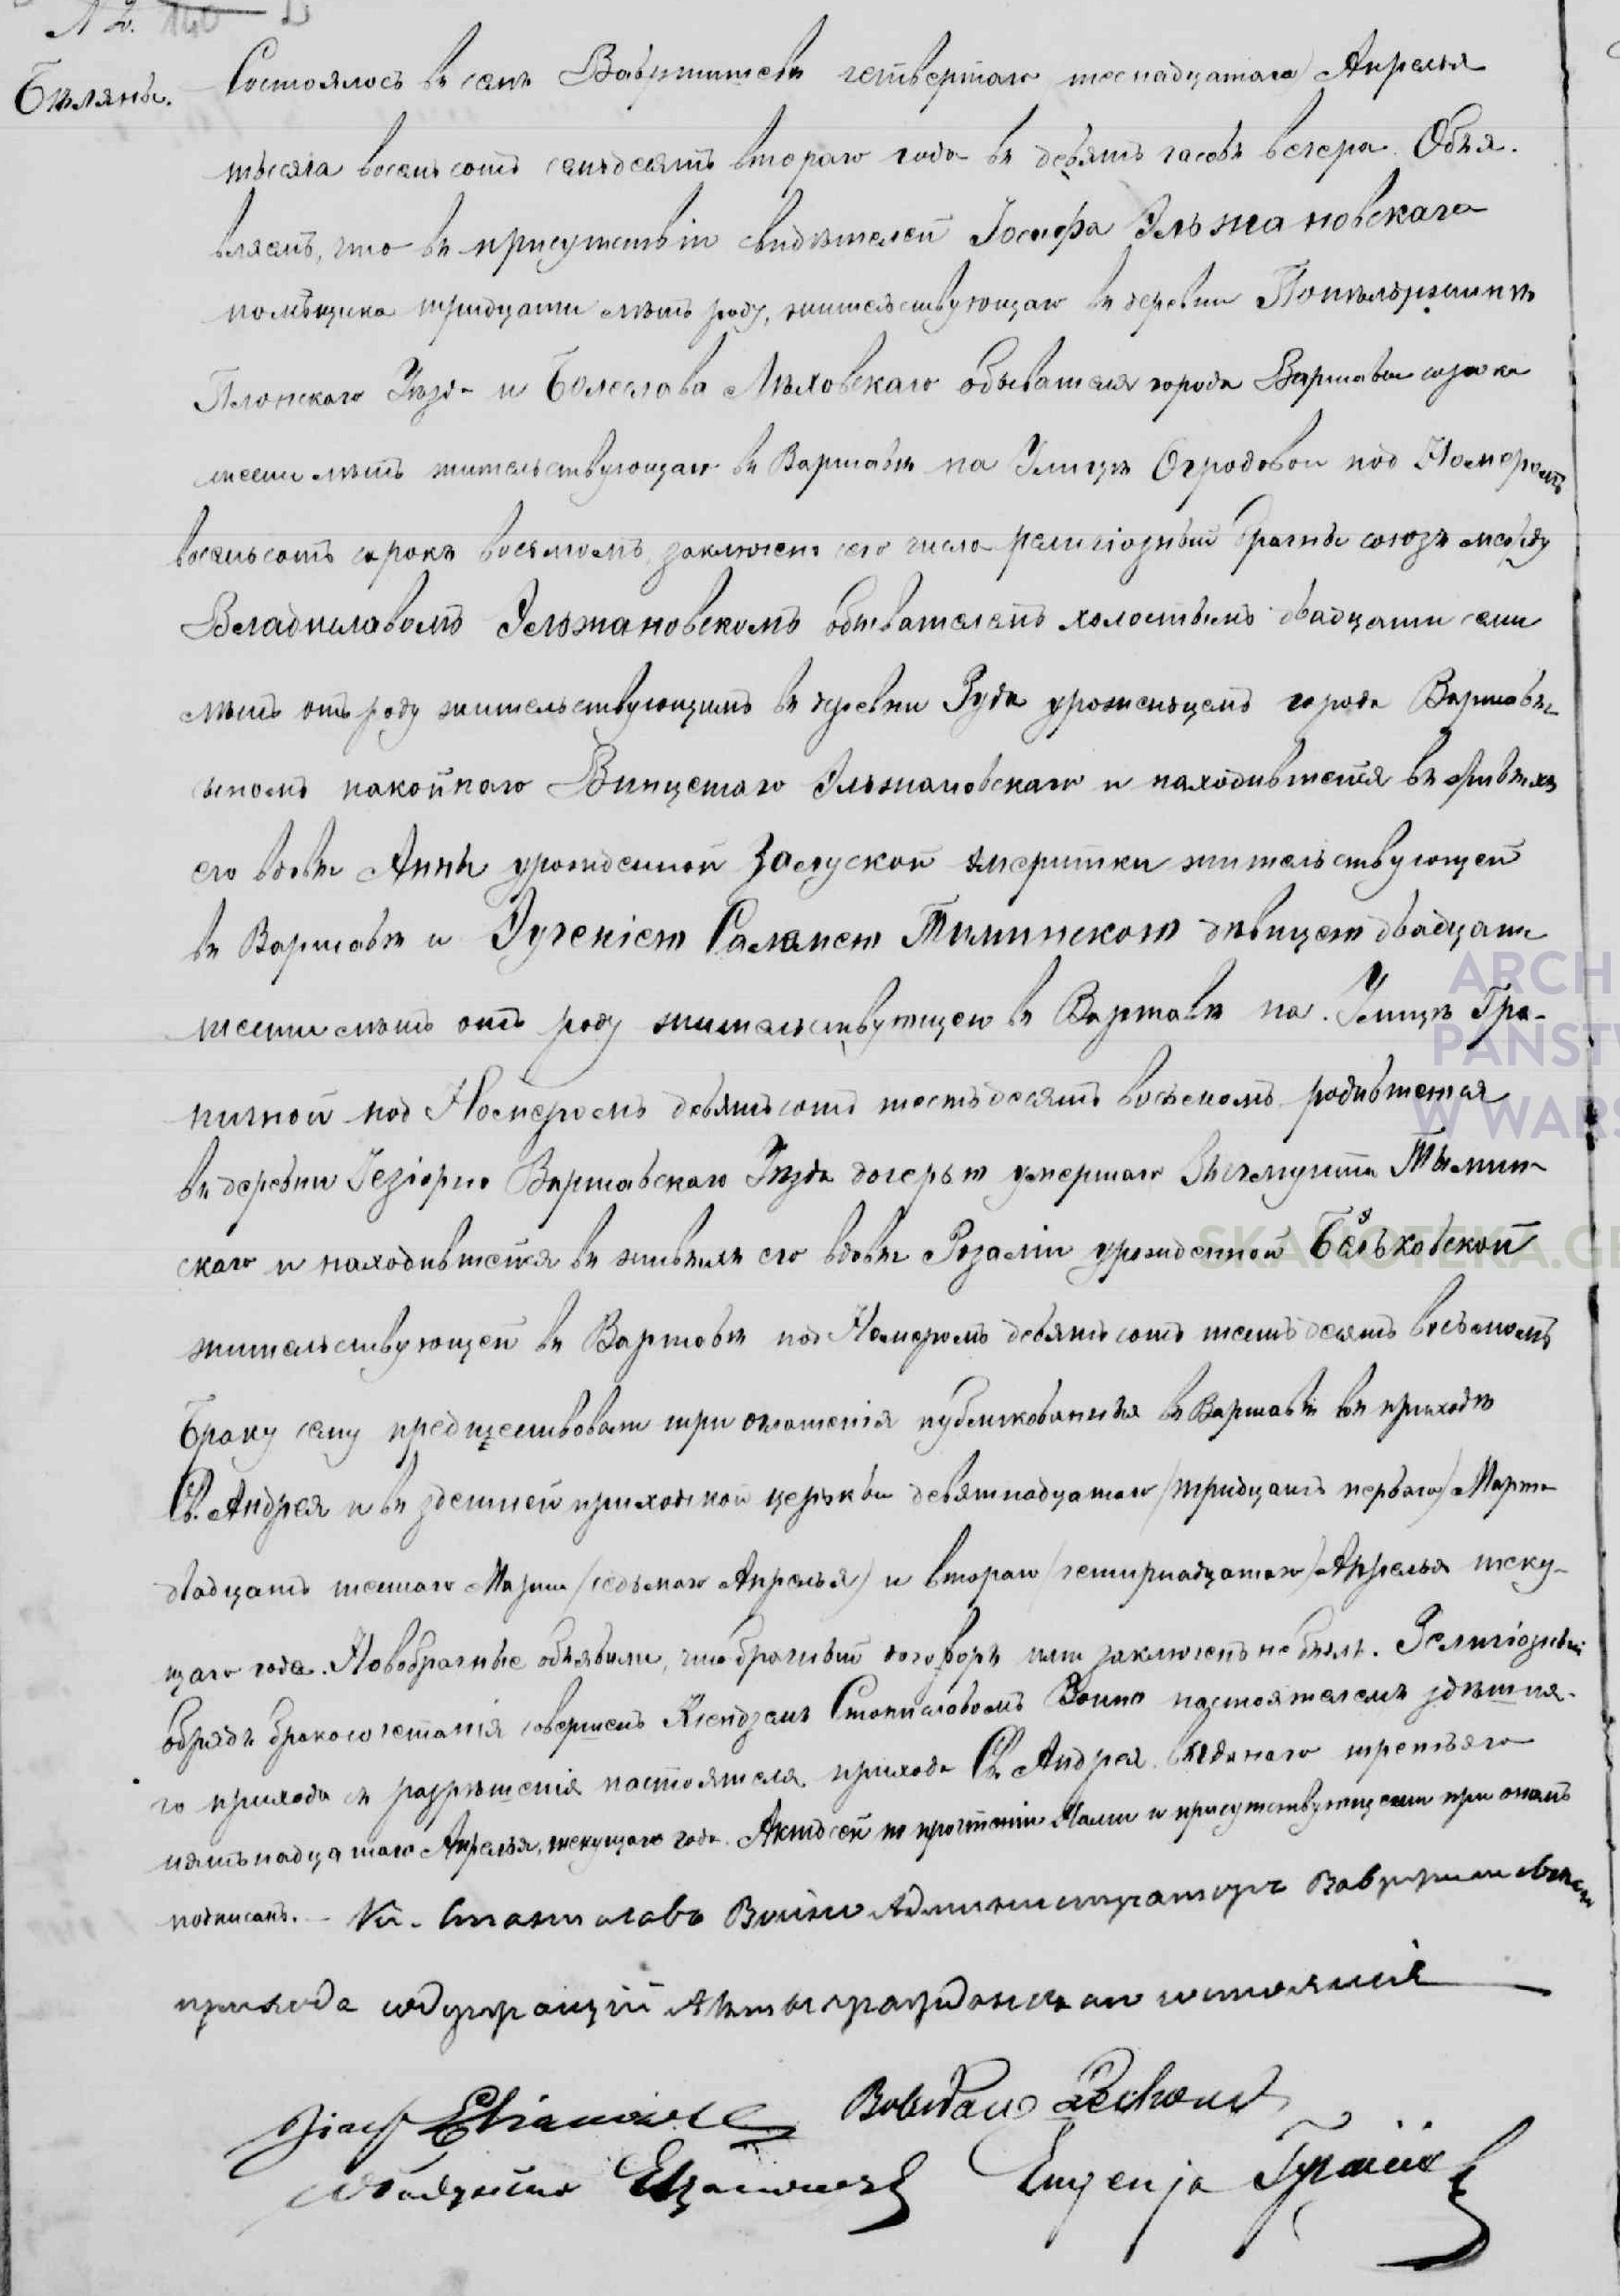 Бѣляны.
Состоялось въ селѣ Вавржишевѣ четвертаго шеснадцатаго Апрелья
тысяча восемьсотъ семьдесятъ втораго года въ девять часовъ вечера. Объя-
вляемъ, что въ присутствіи свидѣтелей Іосифа Эльжановскаго
помѣщика тридцати лѣтъ роду, жительствующаго въ деревни
Плонскаго Уѣзда и Болеслава Мѣховскаго обывателя города Варшавы сорока
шести лѣтъ жительствующаго въ Варшавѣ на Улицѣ Огродовой под Номеромъ
восемьсотъ сорокъ восьмомъ, заключенъ сего числа религіозный брачный союзъ между
Владиславомъ Эльжановскомъ обывателемъ холостымъ двадцати семи
лѣтъ отъ роду жительствующимъ въ деревни Руда уроженьцемъ города Варшавы
сыномъ покойнаго Винцентаго Эльжановскаго и находившейся въ живыхъ
его вдовы Анны урожденной Залуской эмеритки жительствующей
въ Варшавѣ и Эугеніею Саломеею Тыминскою дѣвицею двадцати
шести лѣтъ отъ роду жительствующею въ Варшавѣ на Улицѣ Гра-
ничной под Номеромъ девятьсотъ шестьдесятъ восьмомъ родившеюся
въ деревни Іезіорно Варшавскаго Уѣзда дочерью умершаго Зыгмунта Тымин-
скаго и находившейся въ живыхъ его вдовы Розаліи урожденной Бяльковской
жительствующей въ Варшавѣ под Номеромъ девятьсотъ шестьдесятъ восьмомъ
Браку сему предшествовали три оглошенія публикованныя въ Варшавѣ въ приходѣ
Св. Андрея и въ здешней приходской церькви девятнадцатаго /тридцать перваго/ Марта
двадцать шестаго Марта /седьмаго Апрелья/ и втораго /четырнадцатаго/ Апрелья теку-
щаго года. Новобрачные объявили, что брачный договоръ ими заключенъ не былъ. Религіозный
обрядъ бракосочетанія совершенъ Ксендземъ Станиславомъ Войно настоятелемъ здѣшня-
го прихода съ разрѣшенія настоятеля прихода Св. Андрея выданаго третьяго
пятьнадцатаго Апрелья, текущаго года. Актъ сей по прочтеніи Нами и присутствующеми при ономъ
подписанъ. – Кс. Станиславъ Войно Администраторъ Вавржишевскаго
прихода содержащій Акты гражданскаго состоянія
Józef Elżanowski
Władysław Elżanowski Eugenja Tymińsk